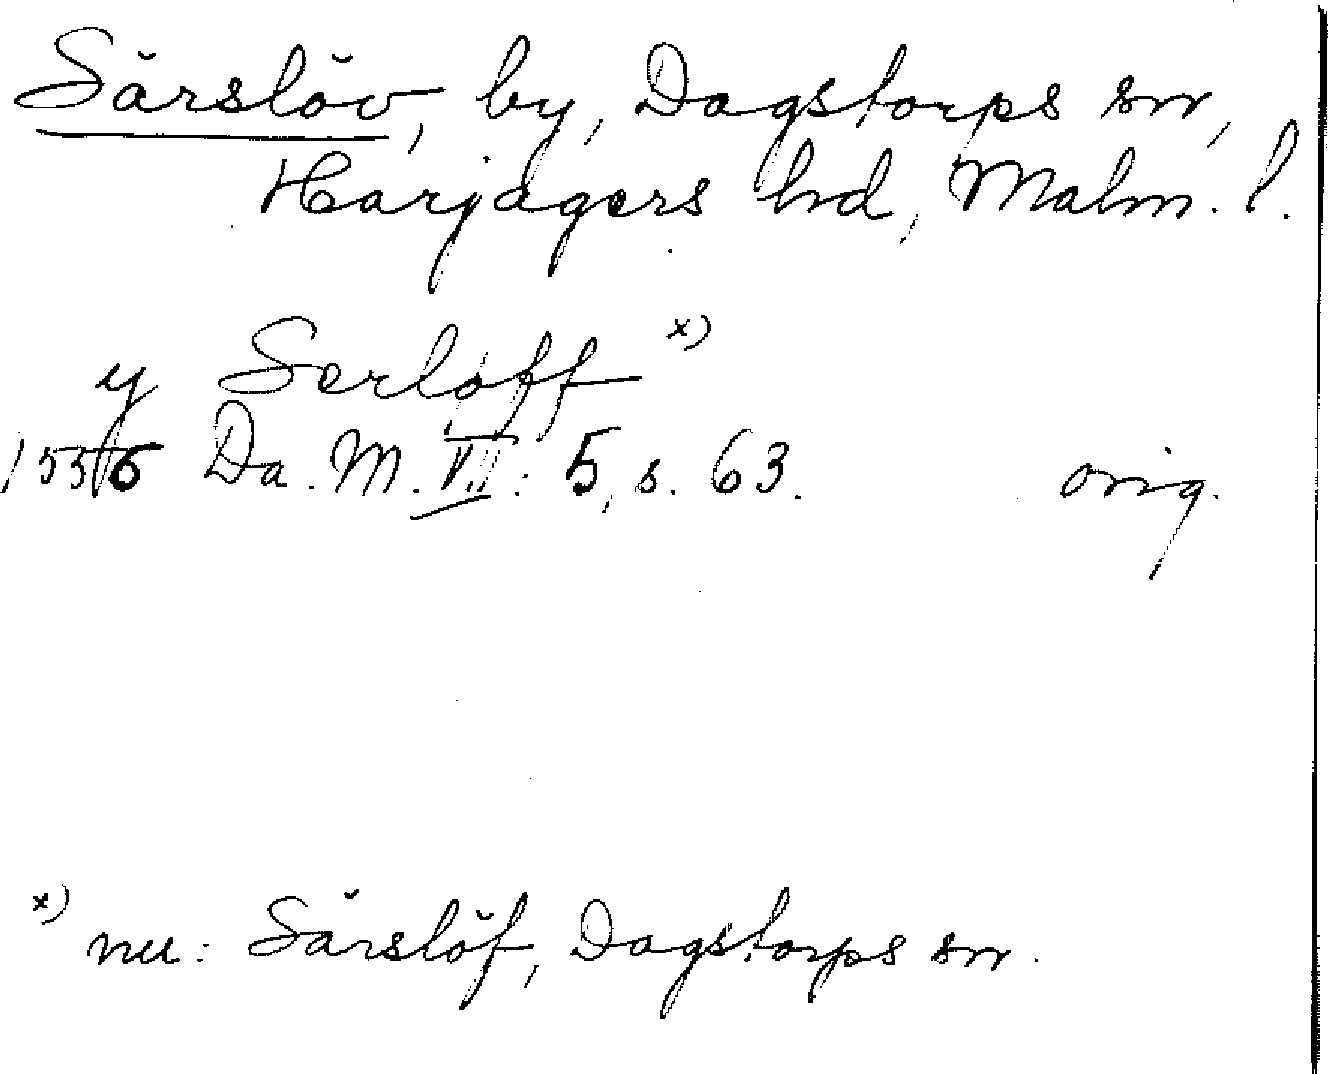 Särslöv, by, Dagstorps sn,
Harjagers hd, Malm. l.
y Serløff x)
1536 Da. M. VI: 5, s. 63. orig.
x) nu: Särslöf, Dagstorps sn.